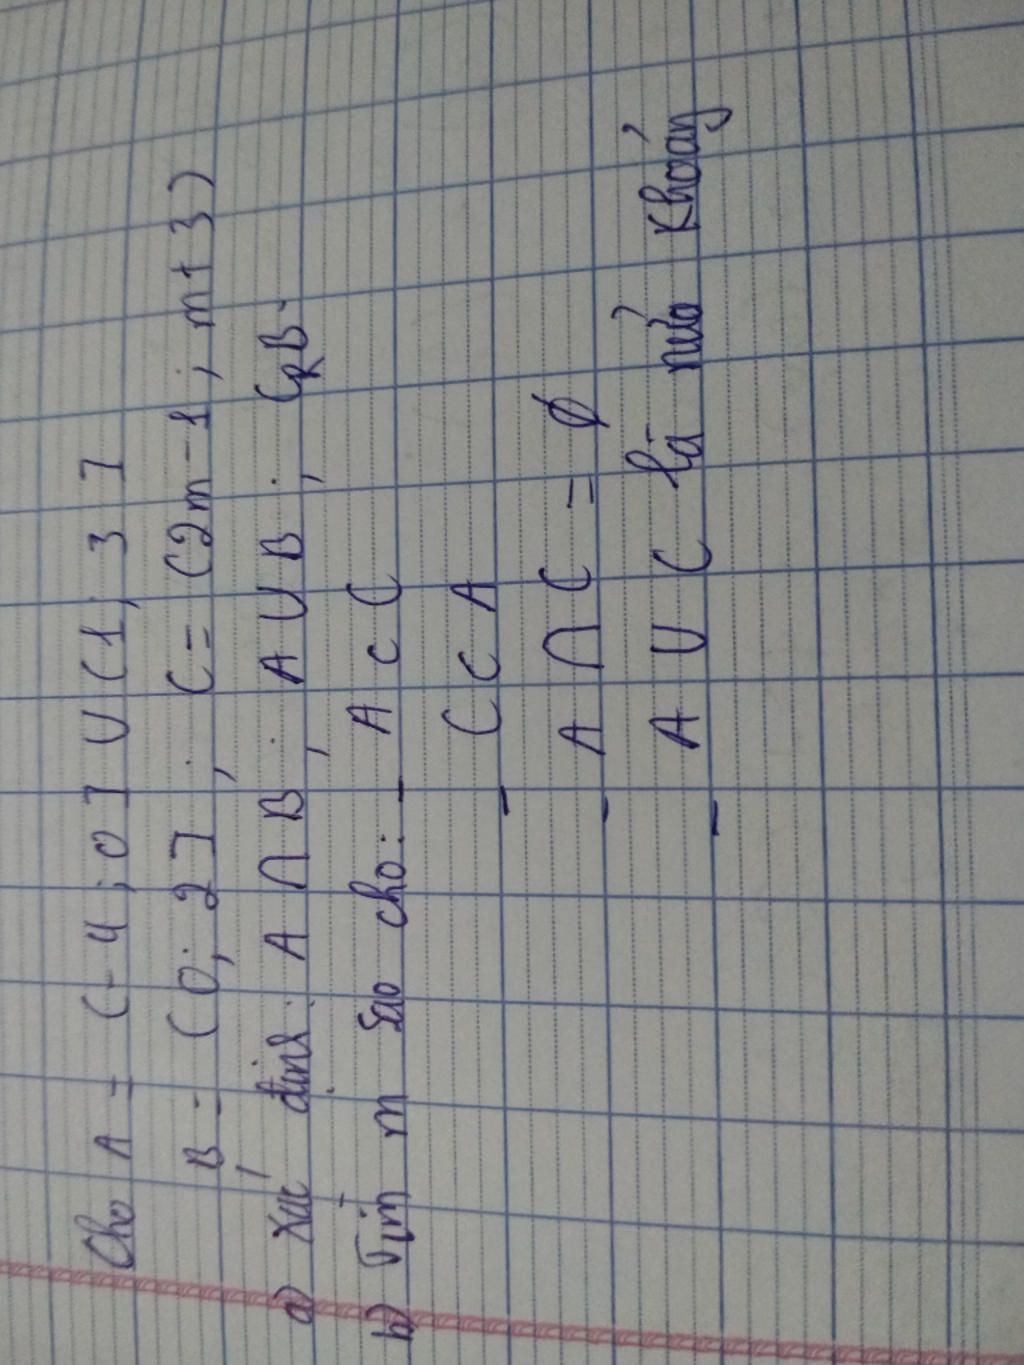 Cho A = (-4; 0] ∪ (1; 3]
B = (0; 2], C = (2m-1; m+3)
a) Xác định: A ∩ B; A ∪ B; CRB.
b) Tìm m sao cho: - A ⊂ C
- C ⊂ A
- A ∩ C = ∅
- A ∪ C là nửa khoảng